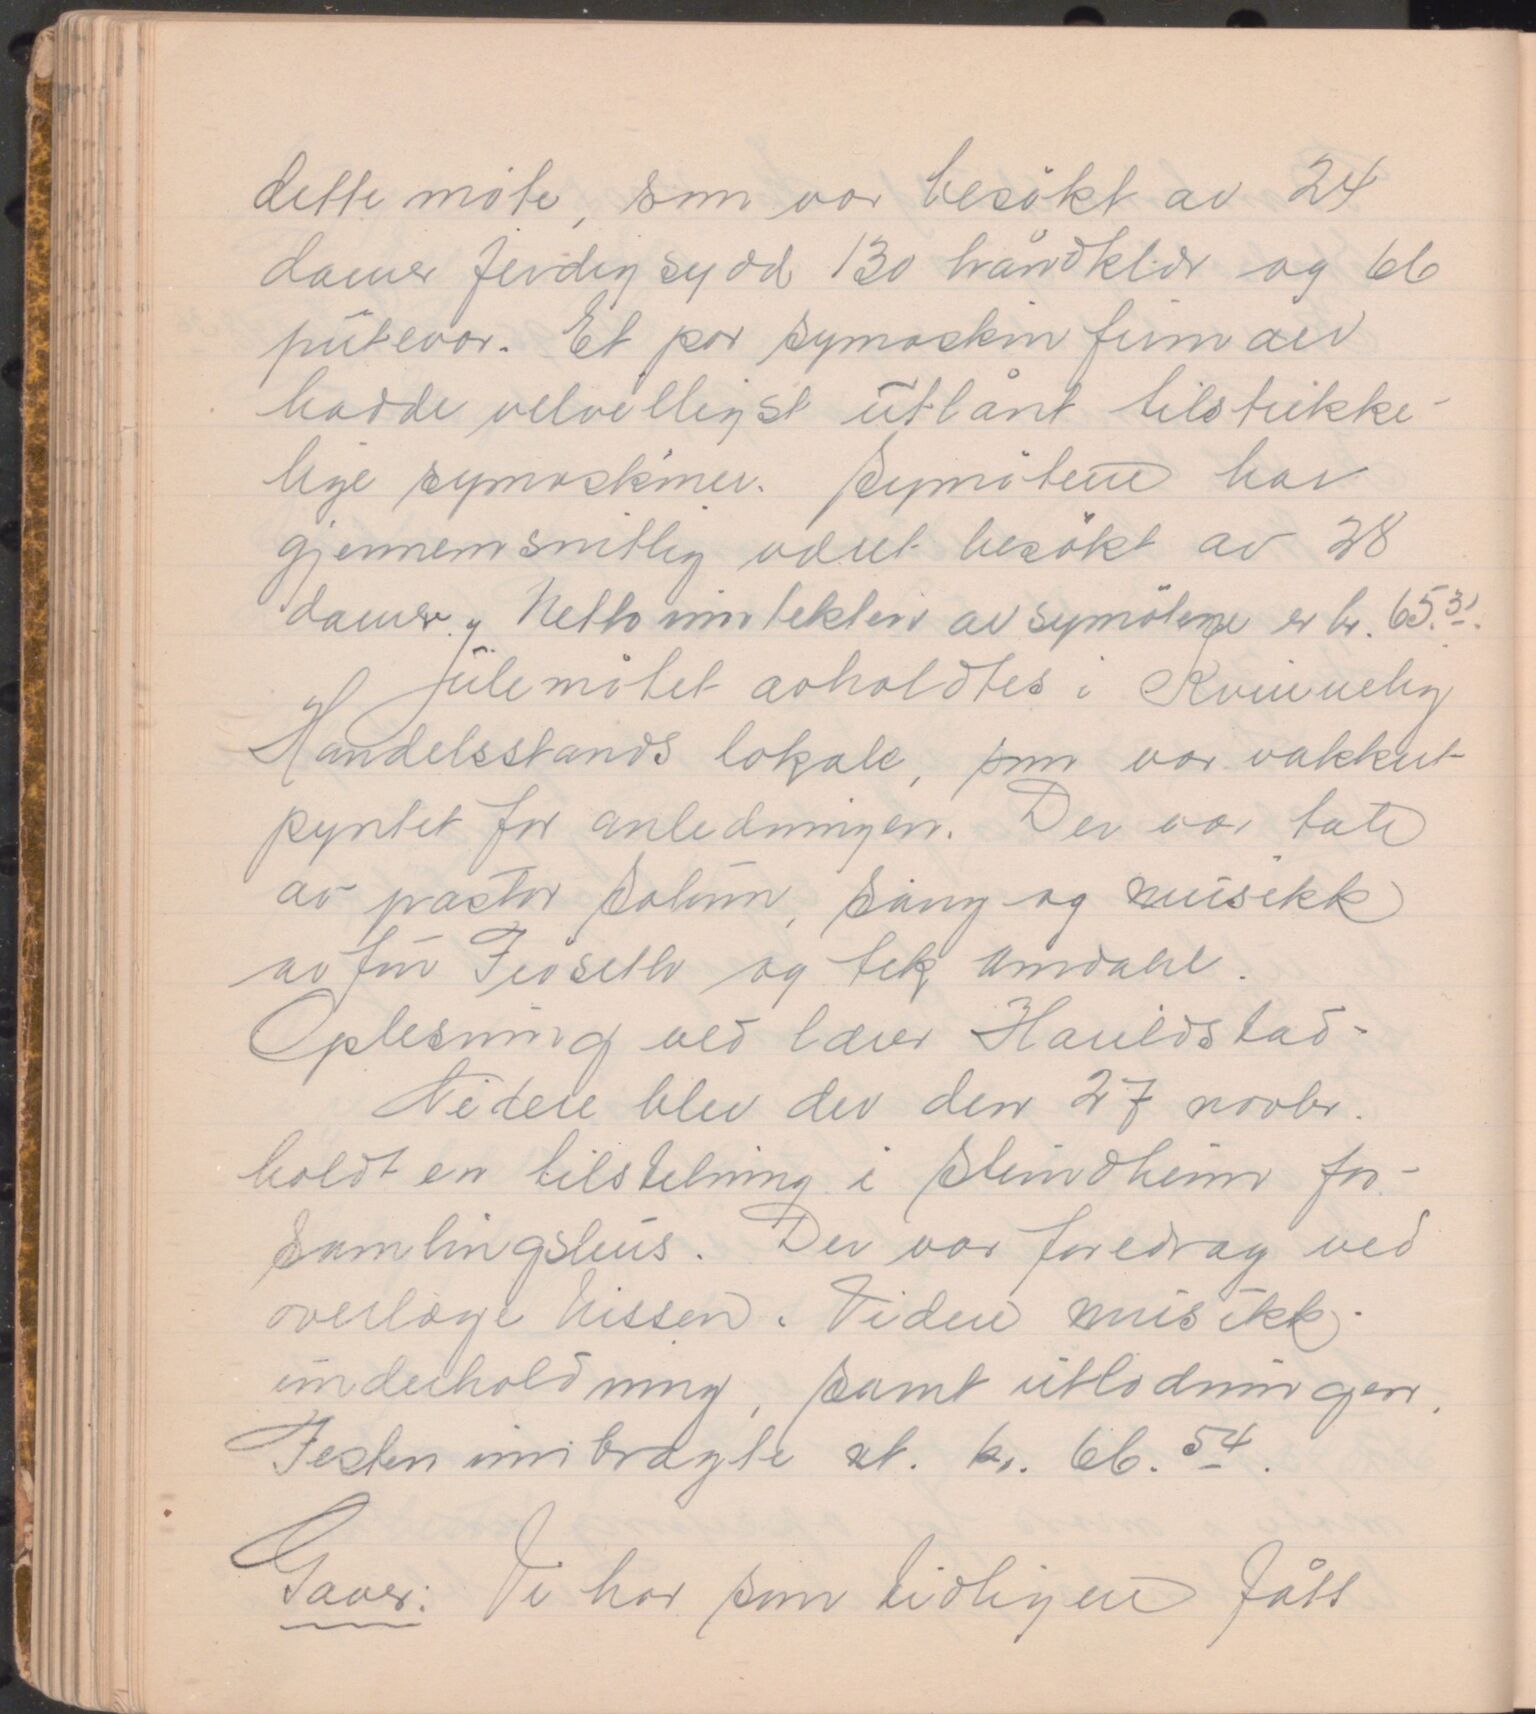 dette møte, som var besøkt av 24
damer ferdigsydd 130 håndklær og 66
putevar. Et par symaskinfirmaer
hadde velvilligst utlånt tilstrekke-
lige symaskiner. Symøtene har
gjennemsnitlig været besøkt av 28
damer. Nettoinntekten av symøtene er kr. 65.31.
Julemøtet avholdtes i Kvinnelig
Handelsstands lokale, som var vakkert
pyntet for anledningen. Der var tale
av pastor Solum, sang og musikk
av fru Fjøseth og frk Amdahl.
Oplesning ved lærer Haueldstad.
Videre blev der den 27 novbr.
holdt en tilstelning i Slindheim for-
samlingshus. Der var foredrag ved
overlæge Nissen. Videre musikk-
underholdning, samt utlodningen.
Festen innbragte nt. kr. 66.54.
Gaver: Vi har som tidligere fått